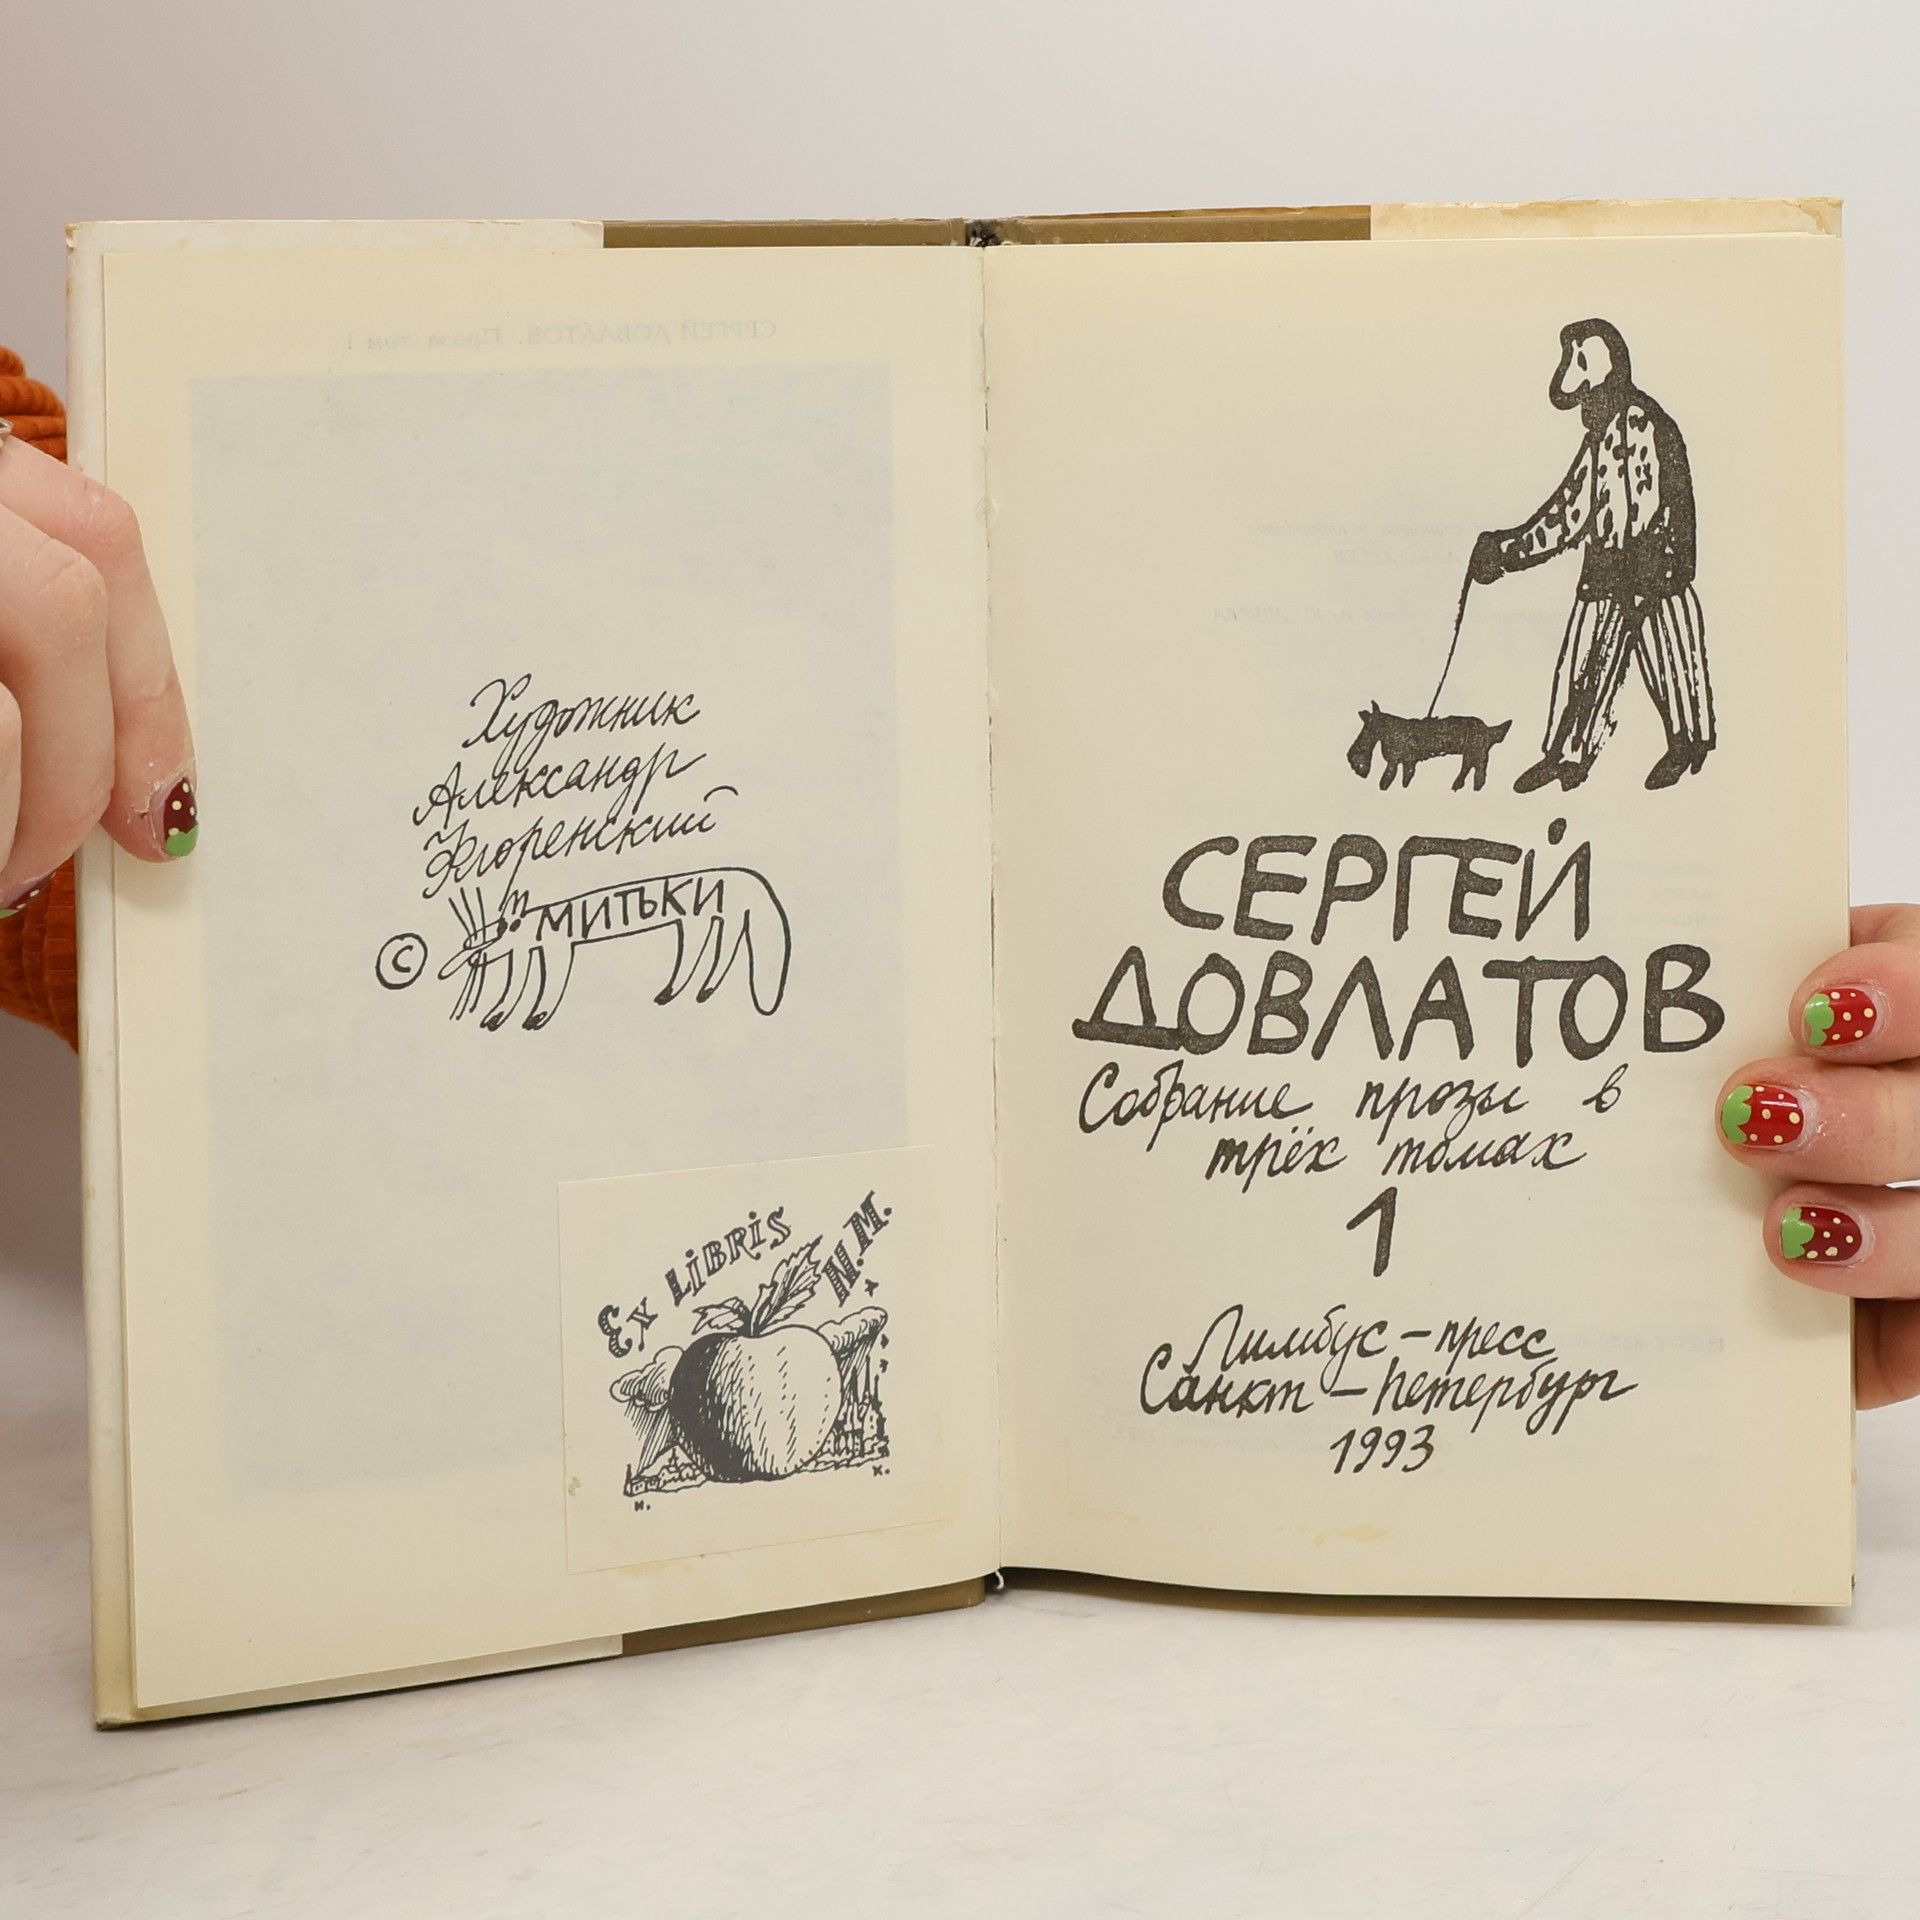 Художник
Александр
Флоренский
© МИТЬКИ
Ex LiBRiS
N.M.
и.
к.
СЕРГЕЙ
ДОВЛАТОВ
Собрание прозы в
трёх томах
1
Лимбус-пресс
Санкт-Петербург
1993